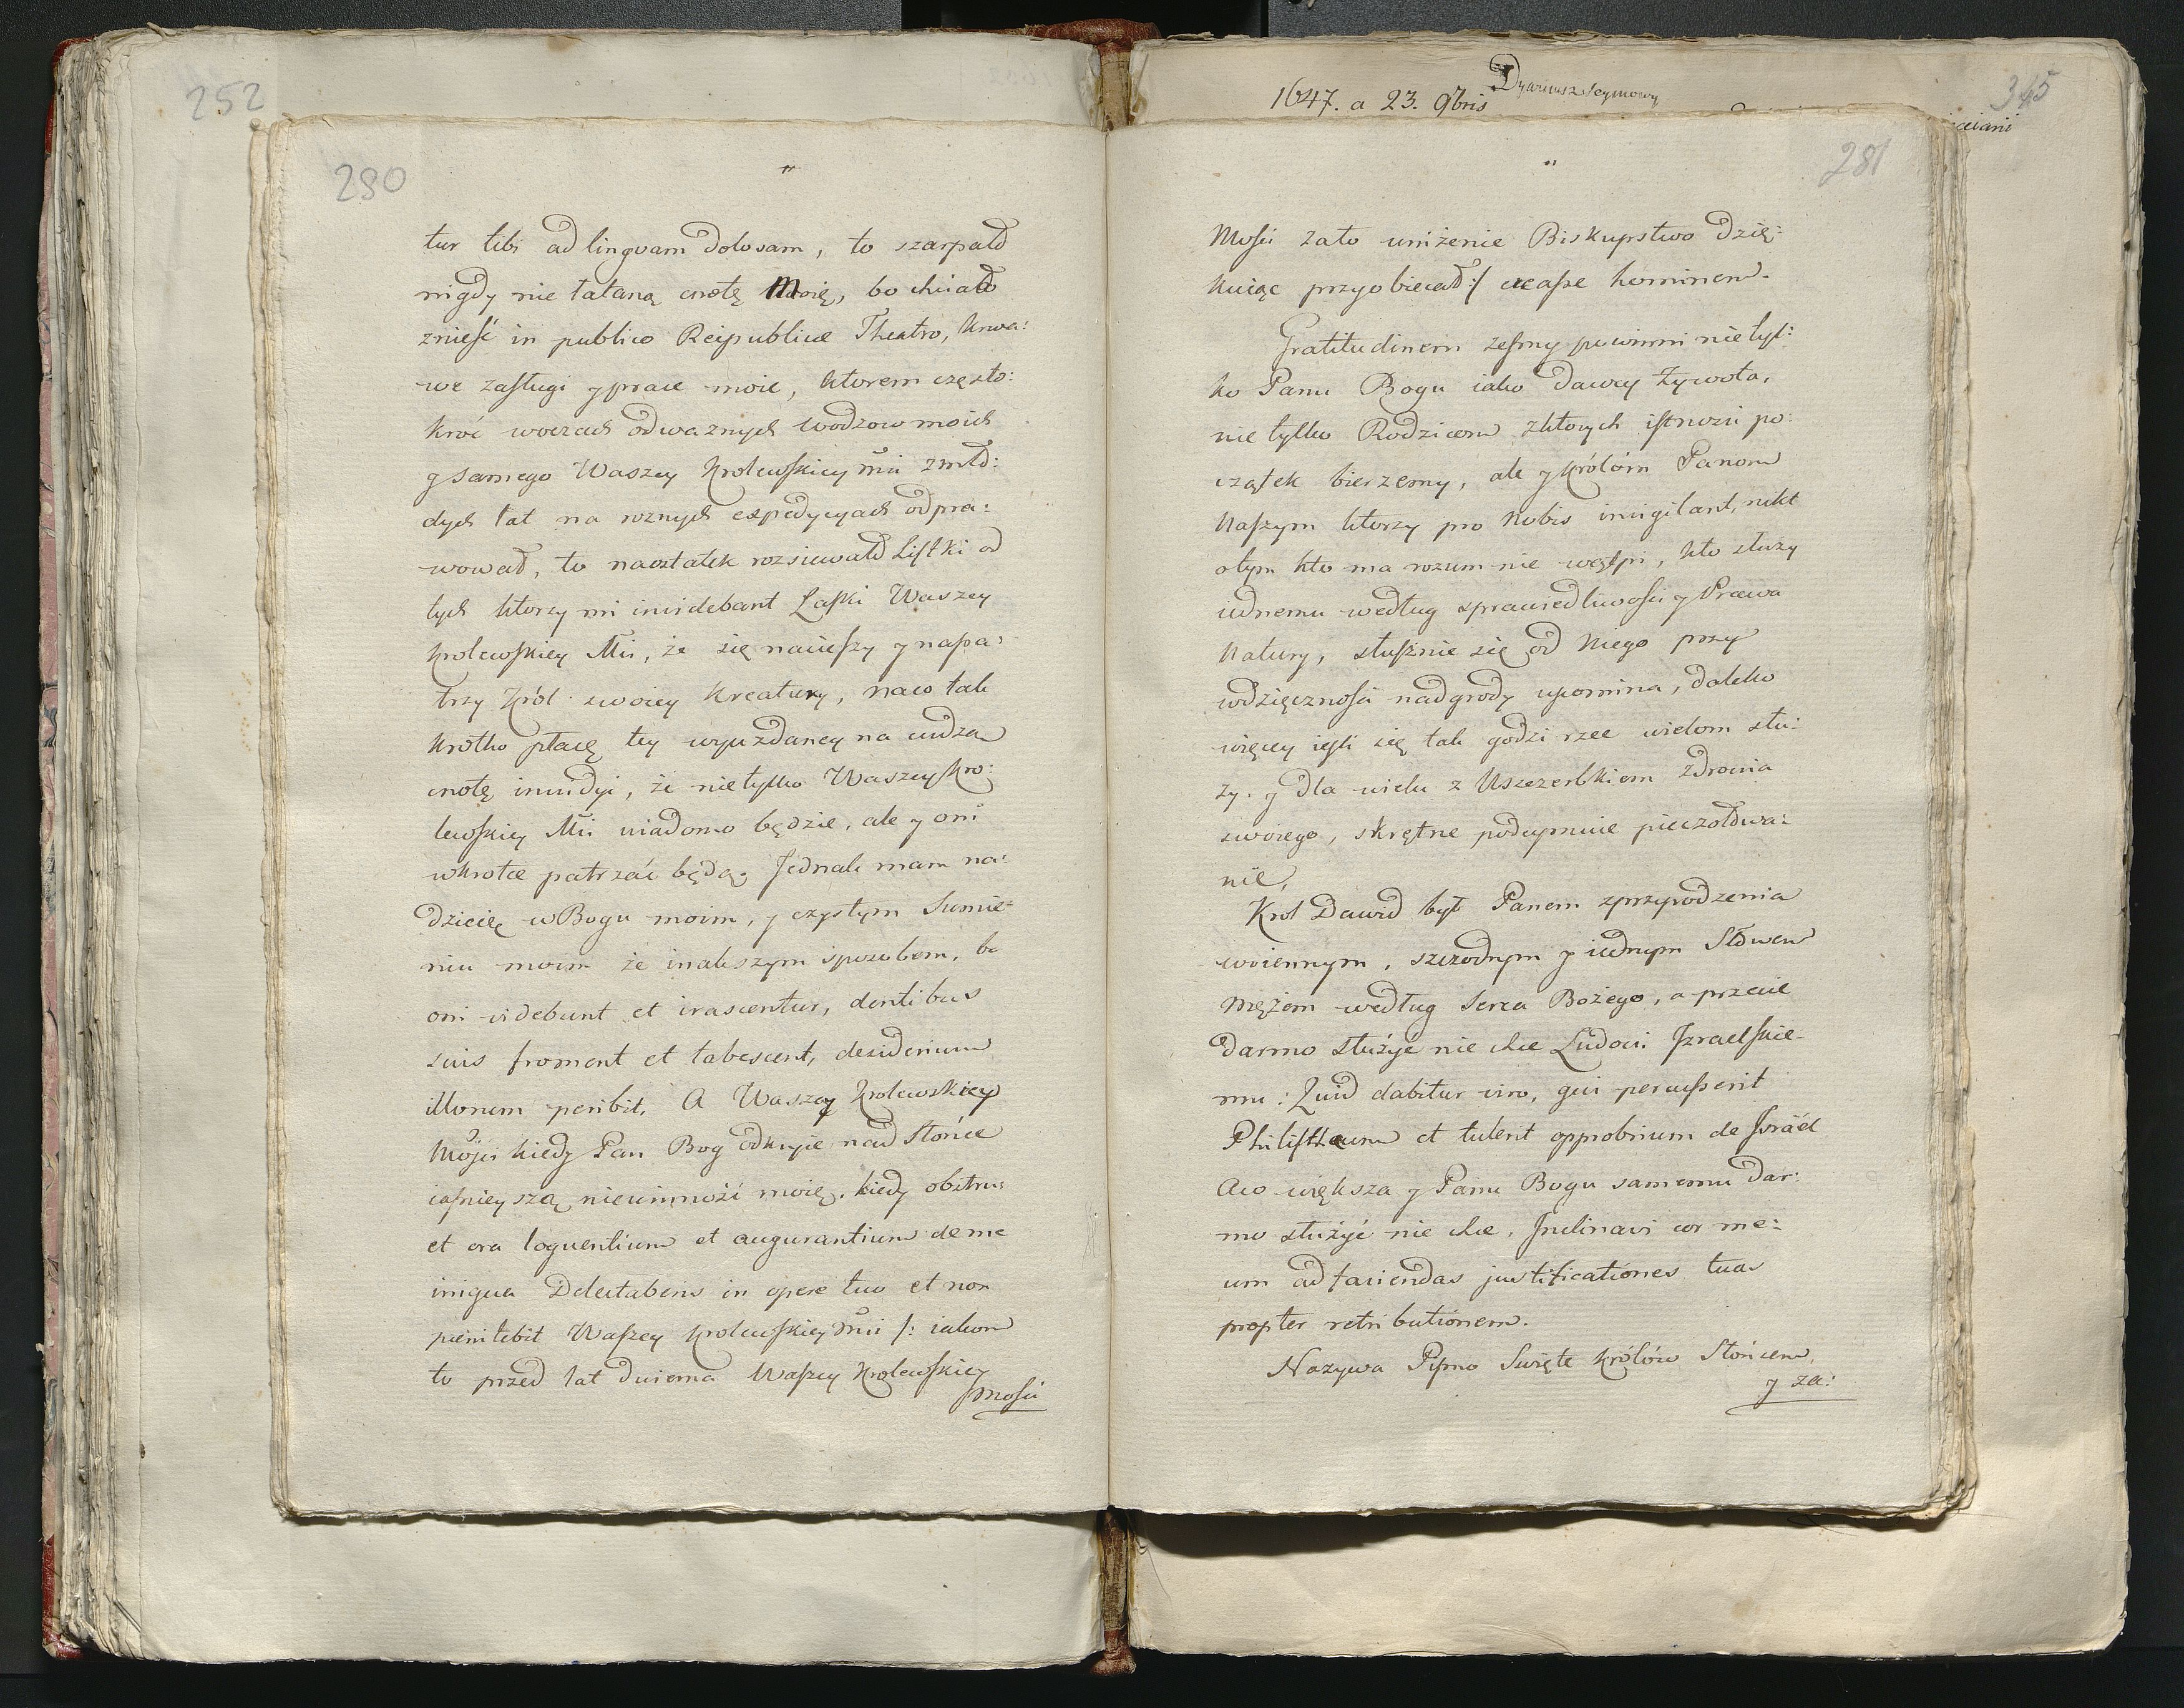 252
280
"
tur tibi ad lingvam dolosam, to szarpał
nigdy nie łataną cnotę Moię, bo chciał
znieść in publico Reipublice Theatro, krwa:
we zasługi y prace moie, ktorem często:
kroć woczach odwaznych wodzow moich
y samego Waszey Krolewskiey Mci zmło:
dych lat na roznych expedycyach odpra:
wował, to naostatek rozsiewał Listki od
tych ktorzy mi invidebant Łaski Waszey
Krolewskiey Mci, że się nacieszy y napa:
trzy Król swoiey Kreatury, naco tak
krotko płacę tey wyuzdaney na cudza
cnotę invidyi, że nie tylko Waszey Kro:
lewskiey Mci wiadomo będzie, ale y oni
wkrotce patrzać będą. Jednak mam na:
dzieię w Bogu moim, y czystym Sumie:
niu moim że inakszym sposobem, bo
oni videbunt et irascentur, dentibus
suis froment et tabescent, desiderium
illorum peribit. A Waszey Krolewskiey
Mości kiedy Pan Bog odkryie nad Słońce
iaśnieyszą niewinność moię, kiedy obstru:
et ora loquentium et augurantium de me
iniqua Delectaberis in opere tuo et non
pænitebit Waszey Krolewskiey Mci /: iakom
to przed lat dwiema Waszey Krolewskiey
Mości
1647. a 23. 9bris Dyariusz Seymowy
345
281
"
Mości zato uniżenie Biskupstwo dzię:
kuiąc przyobiecał :/ creasse hominem.
Gratitudinem żesmy powinni nie tyl:
ko Panu Bogu iako dawcy Zywota,
nie tylko Rodzicom zktorych istności po:
czątek bierzemy, ale y Królóm Panom
Naszym ktorzy pro Nobis invigilant, nikt
otym kto ma rozum nie wątpi, kto służy
iednemu według sprawiedliwości y Prawa
Natury, słusznie się od Niego przy
wdzięczności nadgrody upomina, daleko
więcey iesli się tak godzi rzec wielom słu:
ży. y dla wielu z Uszczerbkiem zdrowia
swoiego, skrętne podeymuie pieczołowa:
nie,
Krol Dawid był Panem zprzyrodzenia
woiennym, szczodrym y iednym Słowem
Mężem według Serca Bożego, a przecie
darmo służyc nie chce Ludowi Izraelskie-
mu: Quid dabitur viro, qui percusserit
Philisthæum et tulerit opprobrium de Israël
Aco większa y Panu Bogu samemu dar:
mo służyć nie chce, Inclinavi cor me:
um ad faciendas justificationes tuas
propter retributionem.
Nazywa Pismo Swięte królów Słońcem,
y za: